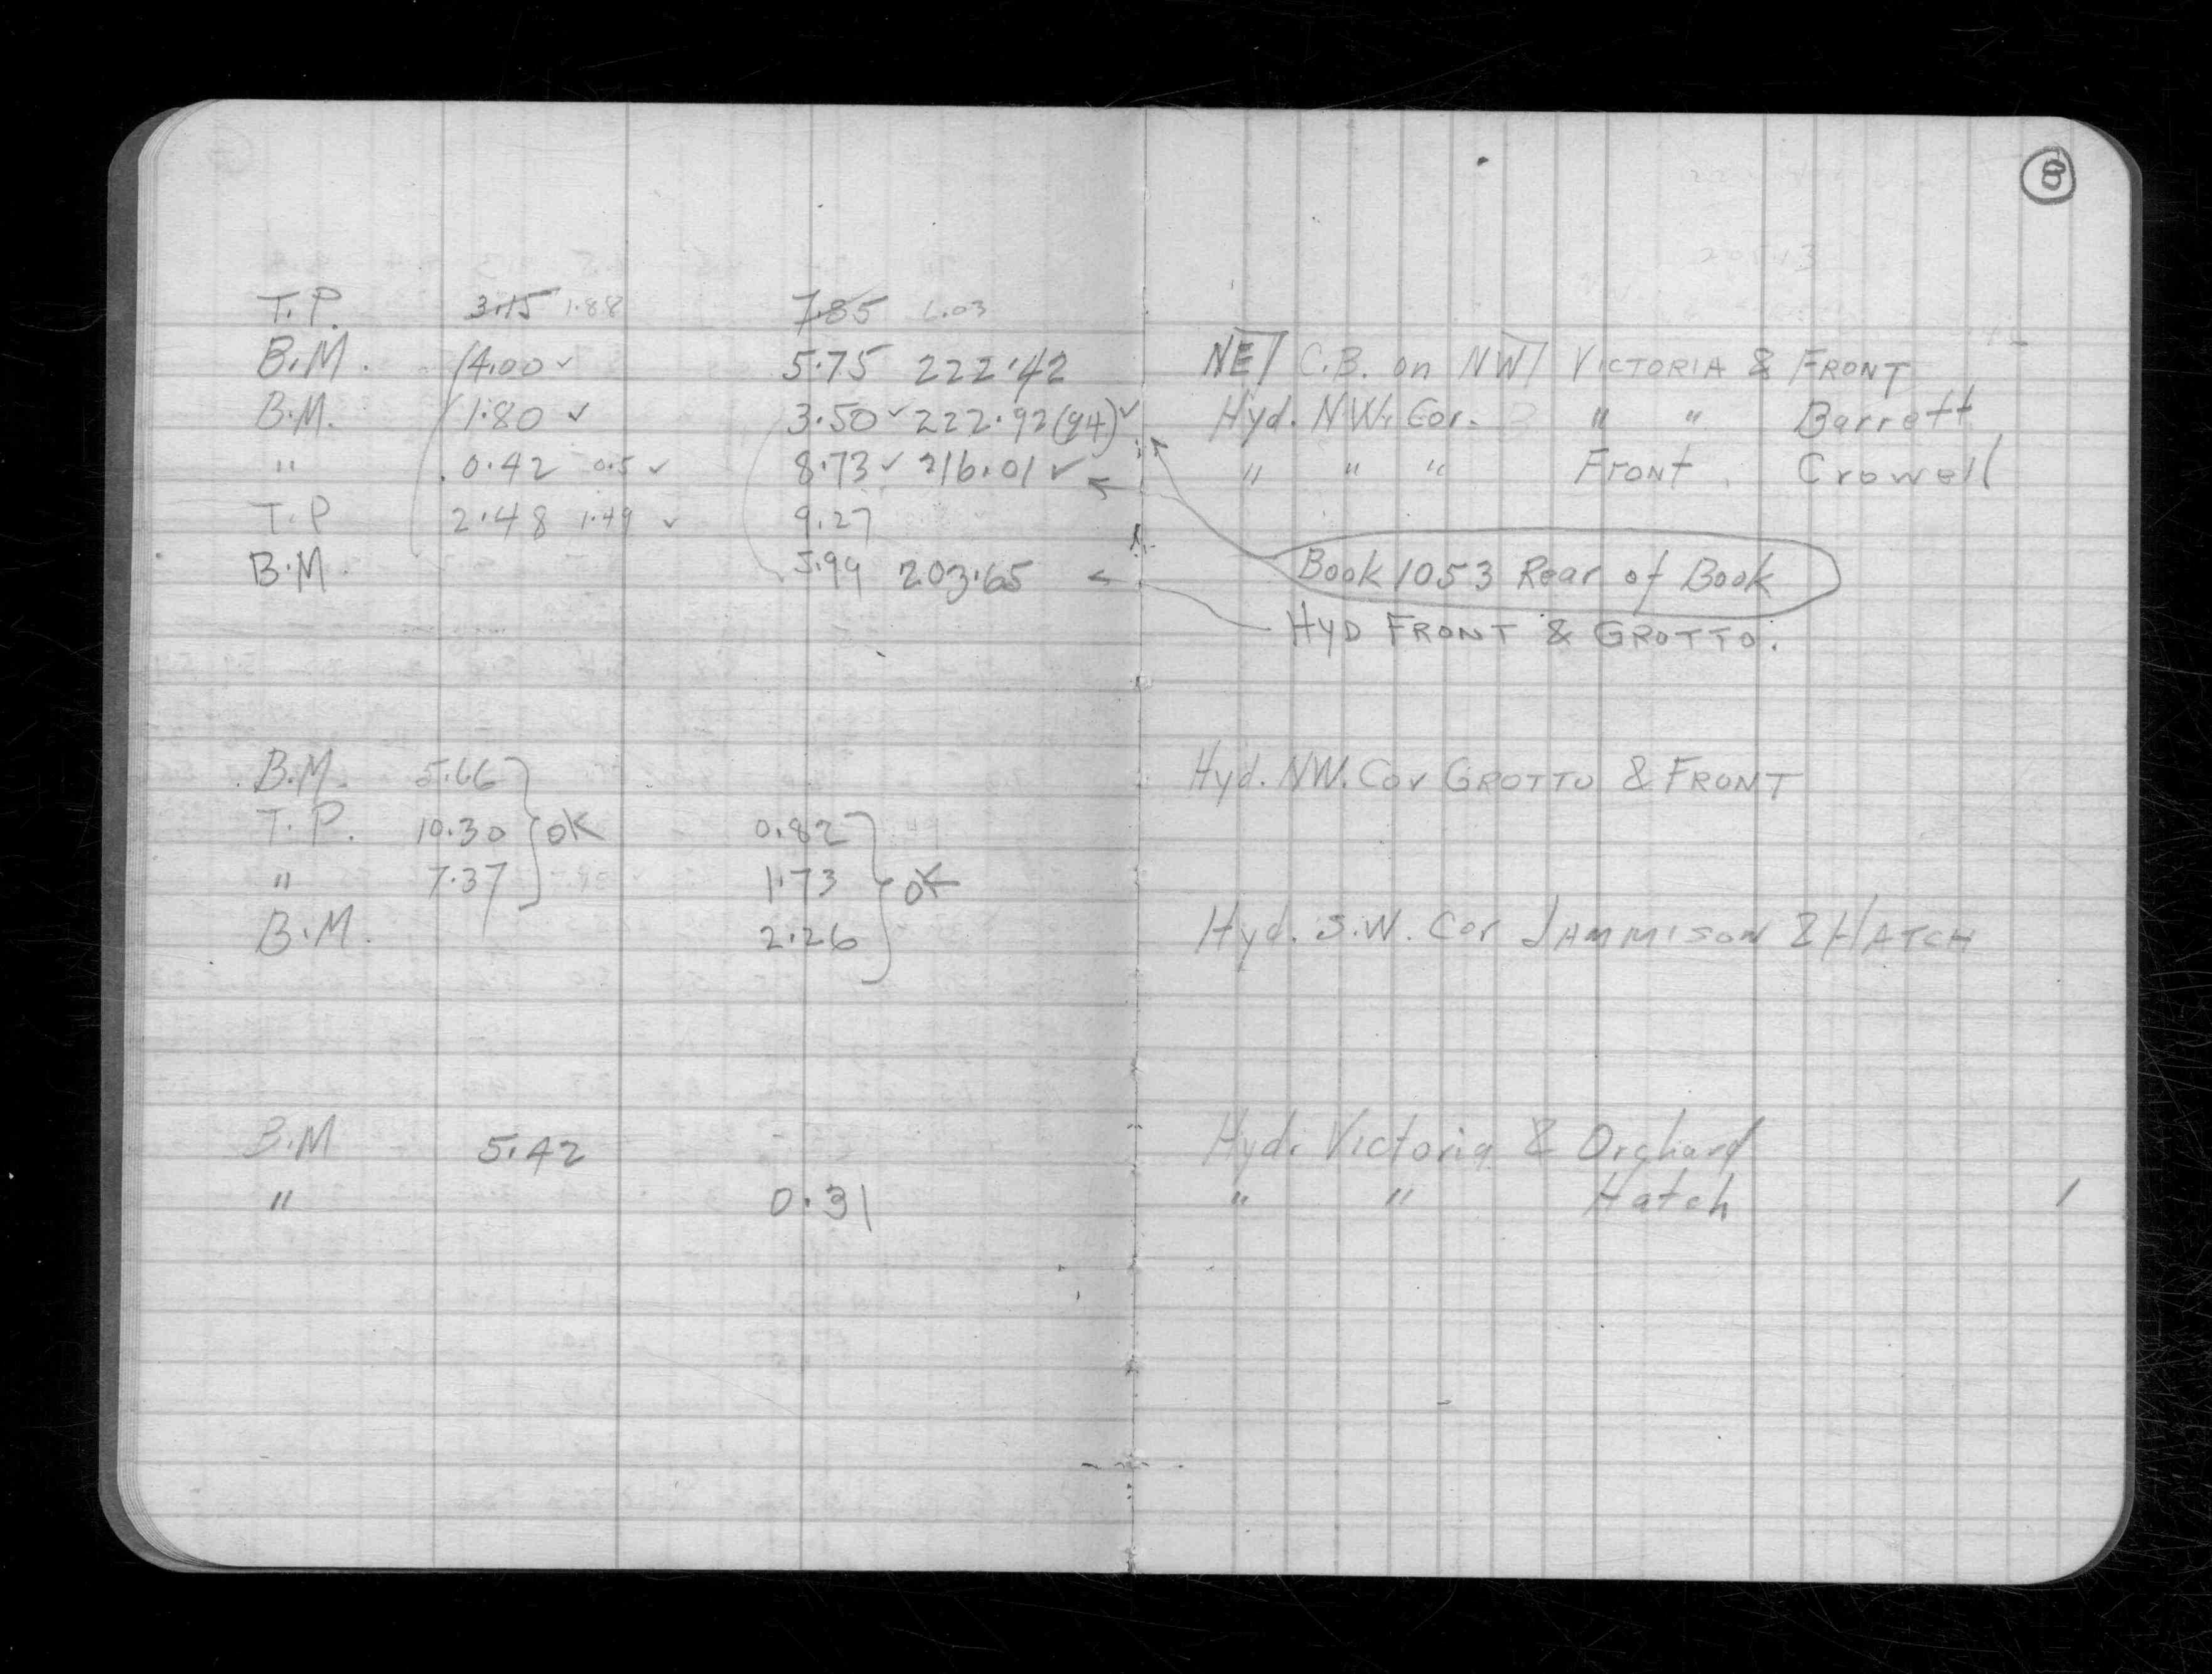 8
T.P. 3.15 1.88 7.85 1.03
B.M. 4.00 ✓ 5.75 222.42 NE/ C.B. on NW/ VICTORIA & FRONT
B.M. 1.80 ✓ 3.50 ✓ 222.92 (94) ✓ Hyd. N.W. Cor. " " Barrett
" 0.42 0.5 ✓ 8.73 ✓ 216.01 ✓ " " " FRONT Crowell
T.P 2.48 1.49 ✓ 9.27
B.M. 5.99 203.65 Book 1053 Rear of Book
HYD FRONT & GROTTO.
B.M. 5.66 Hyd. NW. Cor GROTTO & FRONT
T.P. 10.30 OK 0.82
" 7.37 1.73 OK
B.M. 2.26 Hyd. S.W. Cor JAMMISON & HATCH
B.M 5.42 Hyd. Victoria & Orchard
" 0.31 " " Hatch